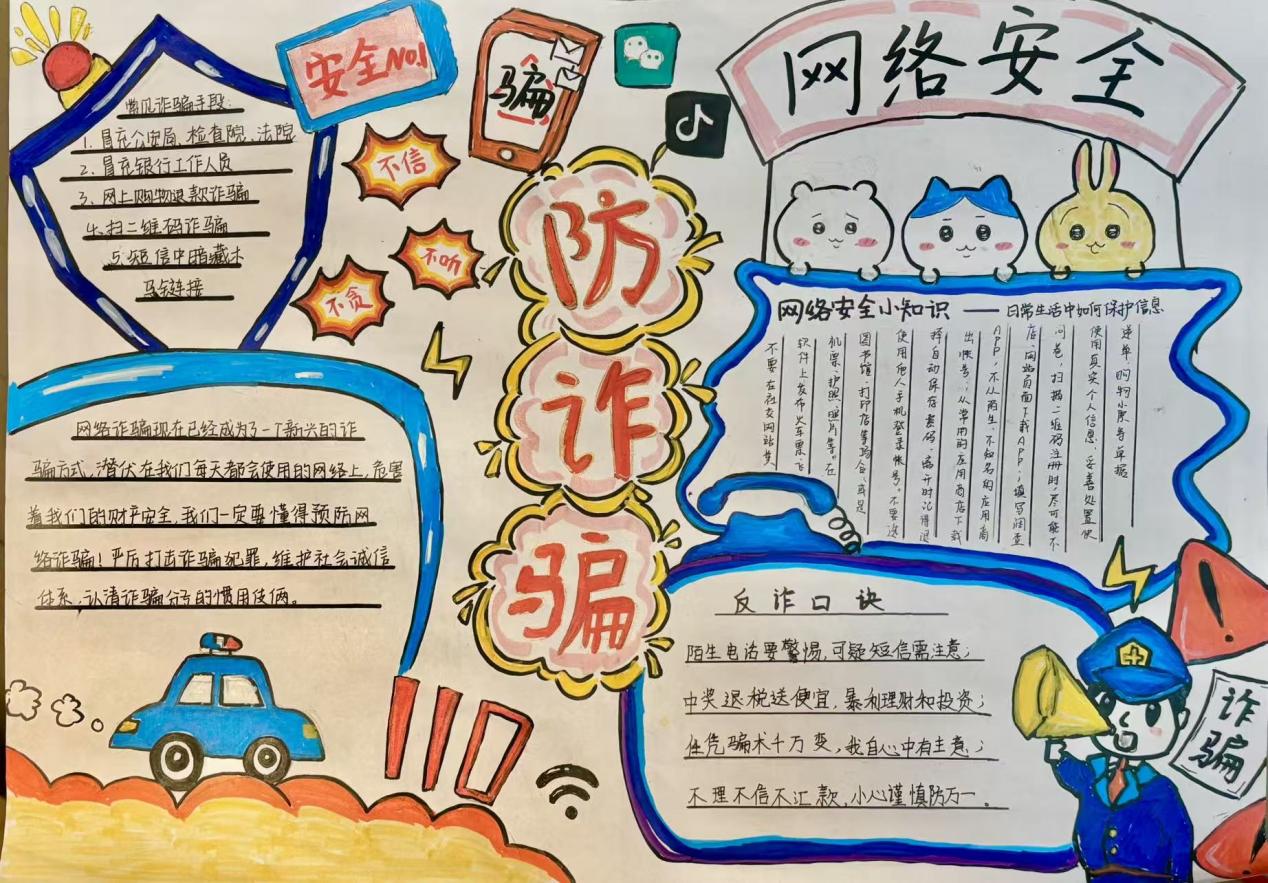 安全NO.1
骗
网络安全
常见诈骗手段:
1、冒充公安局、检查院、法院
2、冒充银行工作人员
3、网上购物退款诈骗
4、扫二维码诈骗
5、短信中暗藏木
马链接
不信
不听
不贪
防
诈
骗
网络安全小知识 — 日常生活中如何保护信息
不要在社交网站类
软件上发布火车票、飞
机票、护照、照片等。在
图书馆、打印店等场合,或是
使用他人手机登录帐号。不要选
择自动保存密码,离开时记得退
出帐号;从常用的应用商店下载
APP,不从陌生、不知名的应用商
店、网站页面下载APP;填写调查
问卷、扫描二维码注册时,尽可能不
使用真实个人信息、妥善处置快
递单、购物小票等单据
网络诈骗现在已经成为了一个新兴的诈
骗方式,潜伏在我们每天都会使用的网络上,危害
着我们的财产安全,我们一定要懂得预防网
络诈骗!严厉打击诈骗犯罪,维护社会诚信
体系,认清诈骗分子的惯用伎俩。
110
反诈口诀
陌生电话要警惕,可疑短信需注意;
中奖退税送便宜,暴利理财和投资;
任凭骗术千万变,我自心中有主意;
不理不信不汇款,小心谨慎防万一。
诈
骗